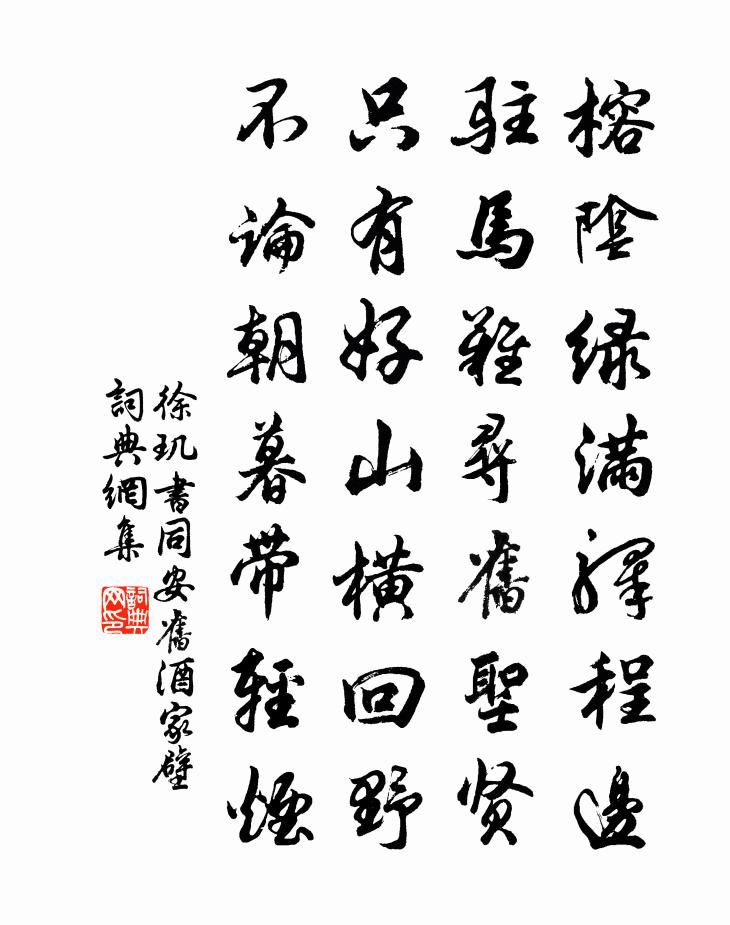 榕陰綠滿驛程邊
駐馬難尋舊聖賢
只有好山橫回野
不論朝暮帶輕煙
徐璣書同安舊酒家壁
詞典網集
詞典网印